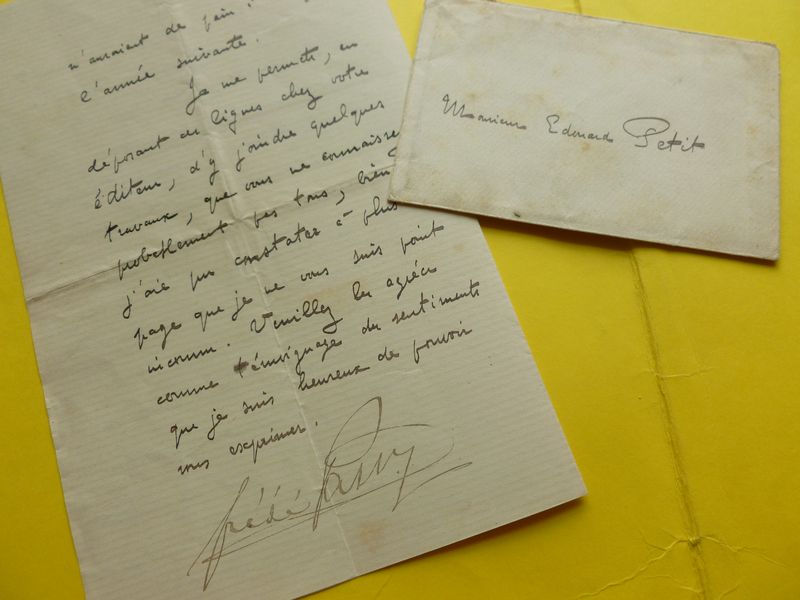 n'auraient de
l'année suivante.
Je me permets, en
déposant ces lignes chez votre
éditeur, d'y joindre quelques
travaux, que vous ne connaissez
probablement pas tous, bien
j'aie pu constater à plus
page que je ne vous suis point
inconnu. Veuillez les agréer
comme témoignage des sentiments
que je suis heureux de pouvoir
vous exprimer.
frédé Passy
Monsieur Edouard Petit